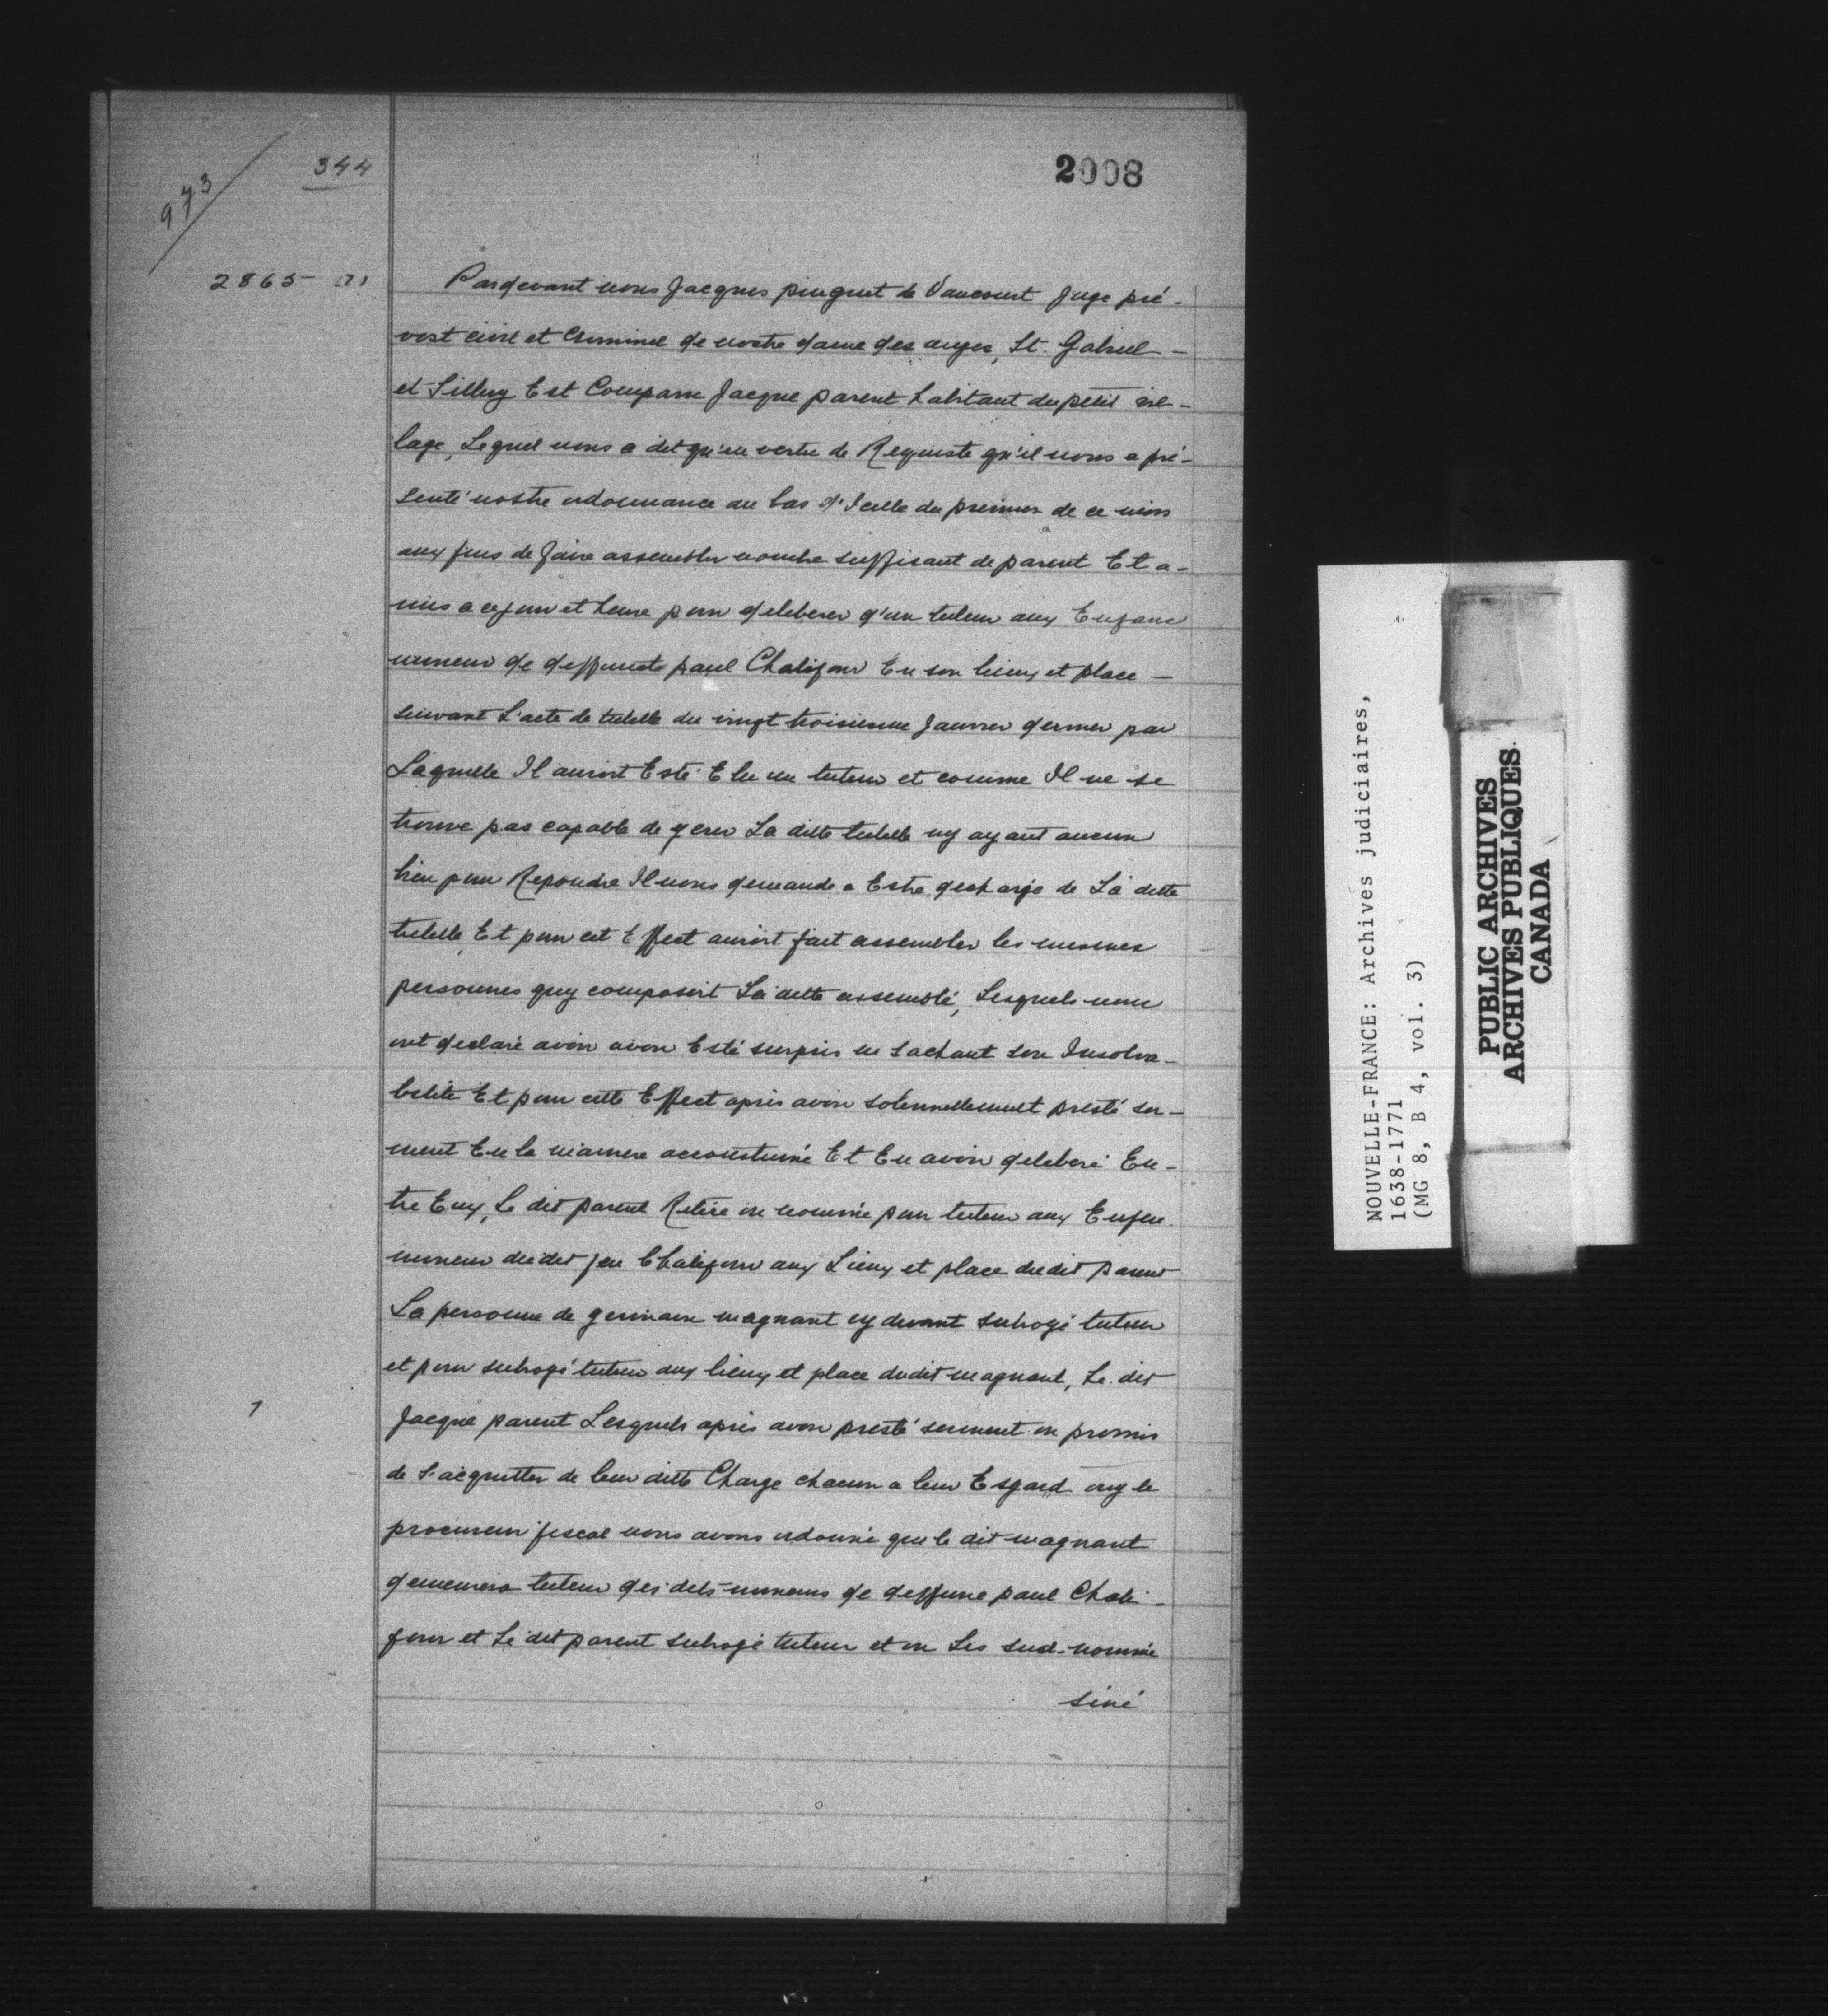 973
344
2008
2865
Pardevant nous Jacques pinguet de Vaucourt Juge pré-
vost civil et Criminel de nostre dame des anges, St. Gabriel -
et Sillery Est Comparu Jacque parent habitant du petit vil-
lage, Lequel nous a dit qu'en vertu de Requeste qu'il nous a pré-
senté nostre ordonnance au bas d'Icelle du premier de ce mois
aux fins de faire assembler nombre suffisant de parent Et a-
mis a ce jour et heure pour deleberer d'un tuteur aux Enfans
mineur de deffunct paul Chalifour En son lieux et place -
suivant L'acte de tutelle du vingt troisieme Janvier dernier par
Laquelle Il auroit Esté Elu un tuteur et comme Il ne se
trouve pas capable de gerer La ditte tutelle ny ayant aucun
bien pour Repondre Il nous demande a Estre decharge de La ditte
tutelle Et pour cet Effect auroit fait assembler les mesmes
personnes quy composoit La ditte assemblé, Lesquels nous
ont declaré avoir avoir Esté surpris ne sachant son Insolva-
belité Et pour cette Effect après avoir solennellement presté ser-
ment En la maniere accoustumé Et En avoir deleberé En-
tre Eux, Le dit parent Retiré on nommé pour tuteur aux Enfen
mineur du dit feu Chalifour aux Lieux et place dudit parent
La personne de germain magnant cy devant subrogé tuteur
et pour subrogé tuteur aux lieux et place dudit magnant, Le dit
Jacque parent Lesquels après avoir presté serment on promis
de s'acquitter de leur ditte Charge chacun a leur Esgard ouy le
procureur fiscal nous avons ordonné que le dit magnant
demeurera tuteur des dits mineurs de deffunc paul Chali-
four et Le dit parent subrogé tuteur et on Les sud-nommé
siné
1
NOUVELLE-FRANCE: Archives judiciaires,
1638-1771
(MG 8, B 4, vol. 3)
PUBLIC ARCHIVES
ARCHIVES PUBLIQUES
CANADA